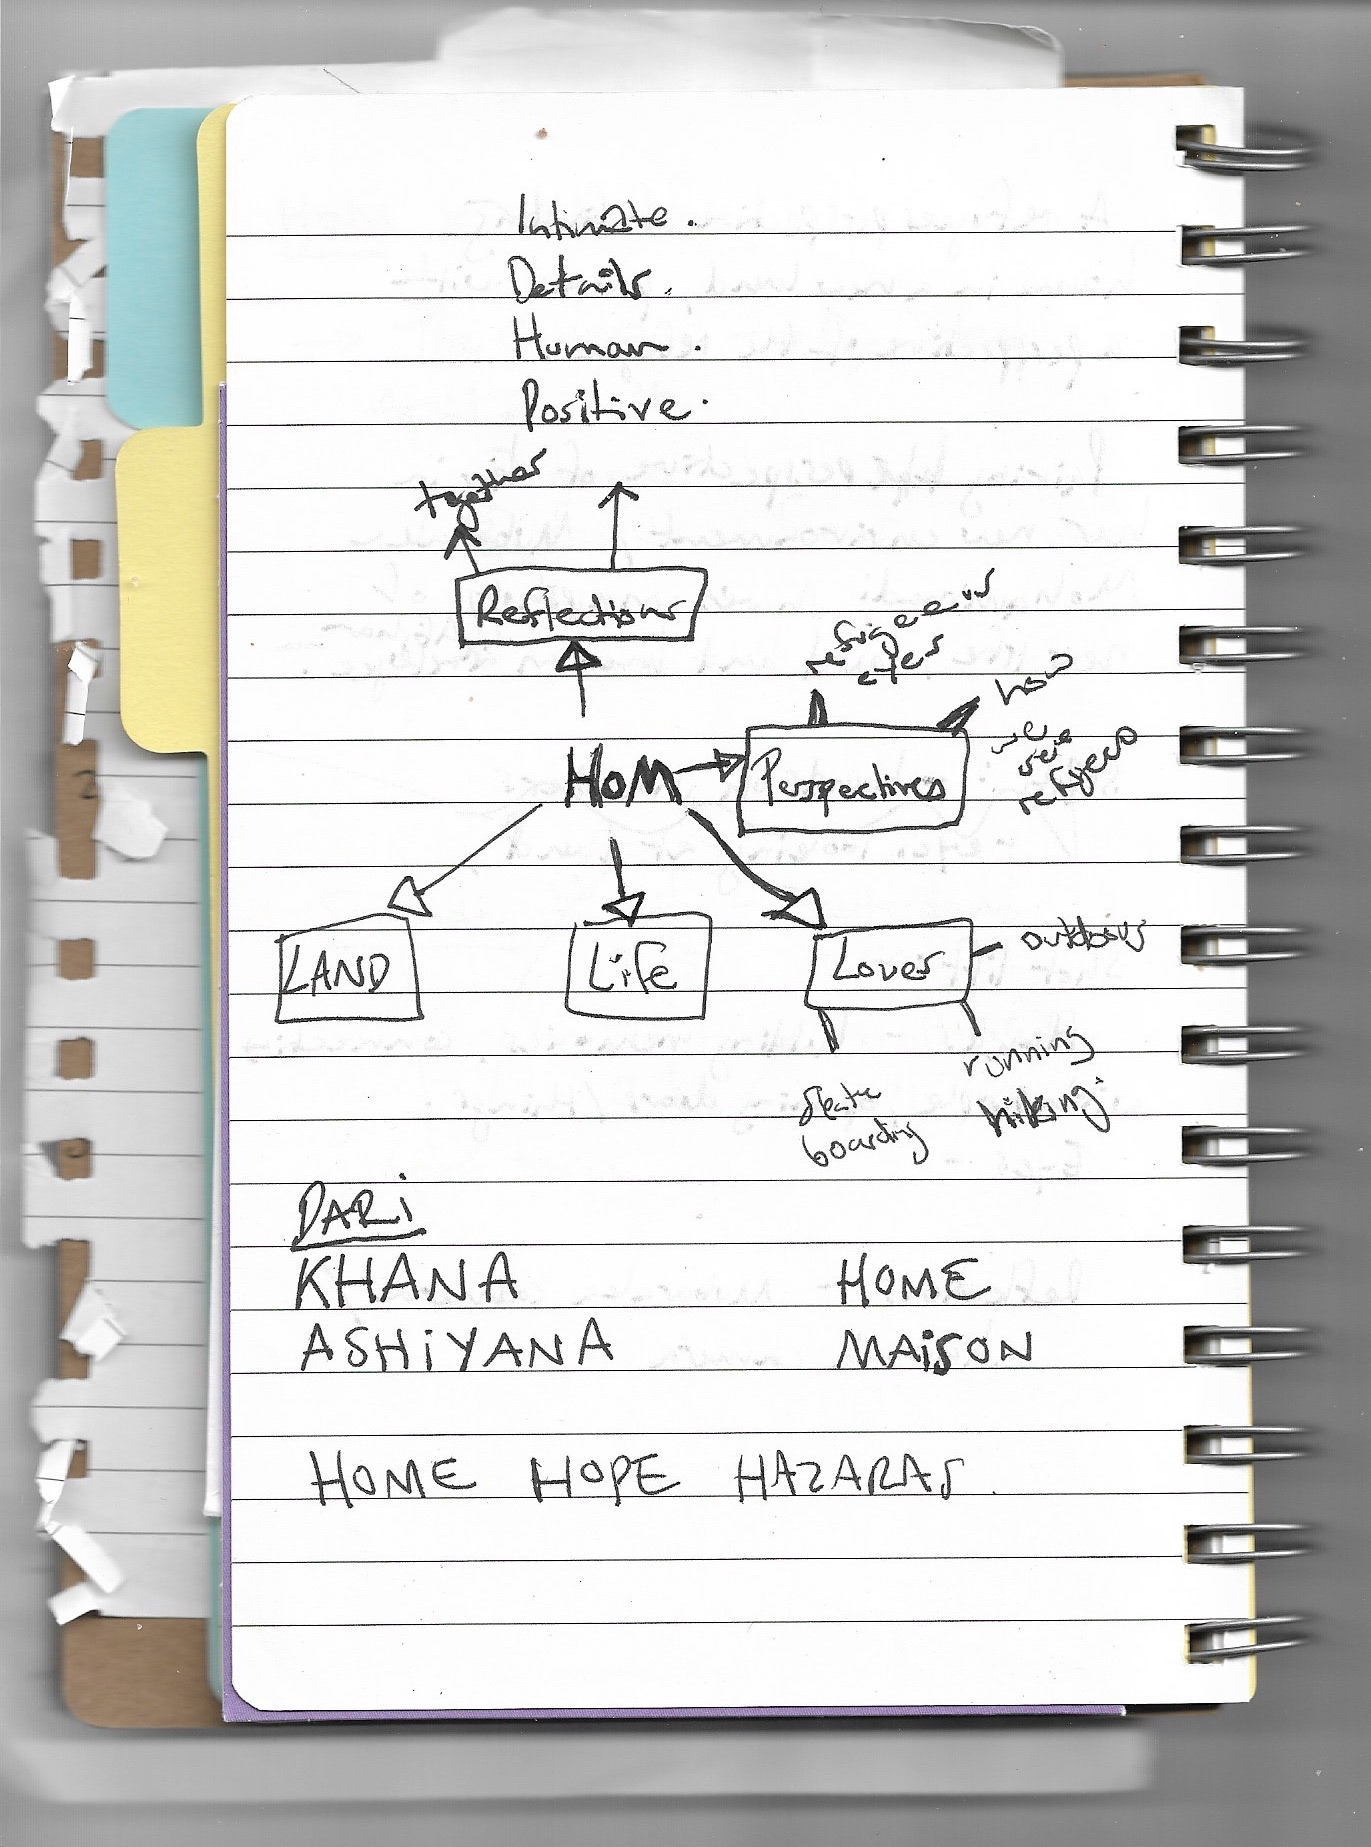 Intimate.
Details.
Human.
Positive.
together
Reflections
refugee
eyes
how
we
see
refugees
HOM
Perspectives
LAND
Life
Lover
outdoors
running
hiking.
skate
boarding
DARi
KHANA HOME
ASHiYANA MAiSON
HOME HOPE HAZARAS
2